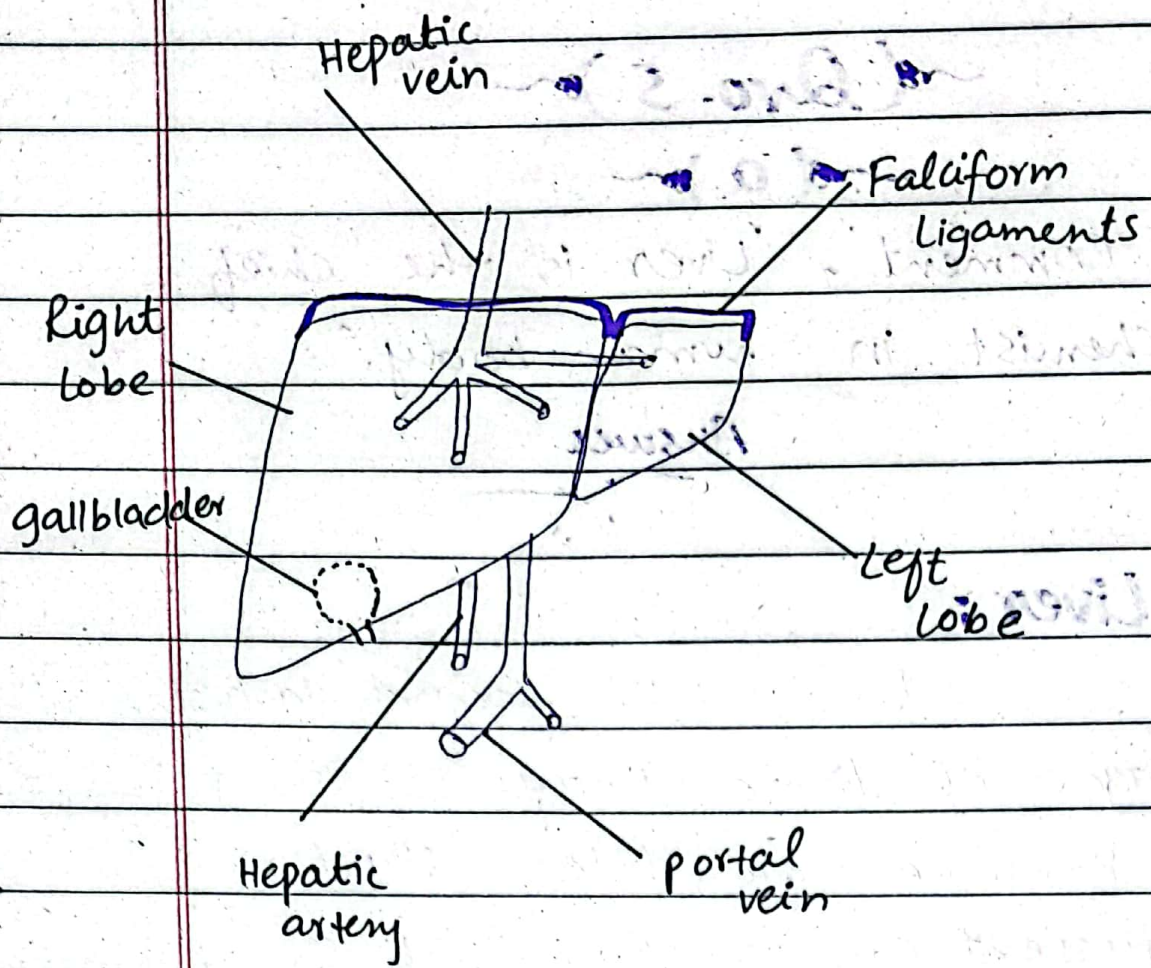 Hepatic
vein
Falciform
ligaments
Right
lobe
gallbladder
Left
lobe
Hepatic
artery
portal
vein